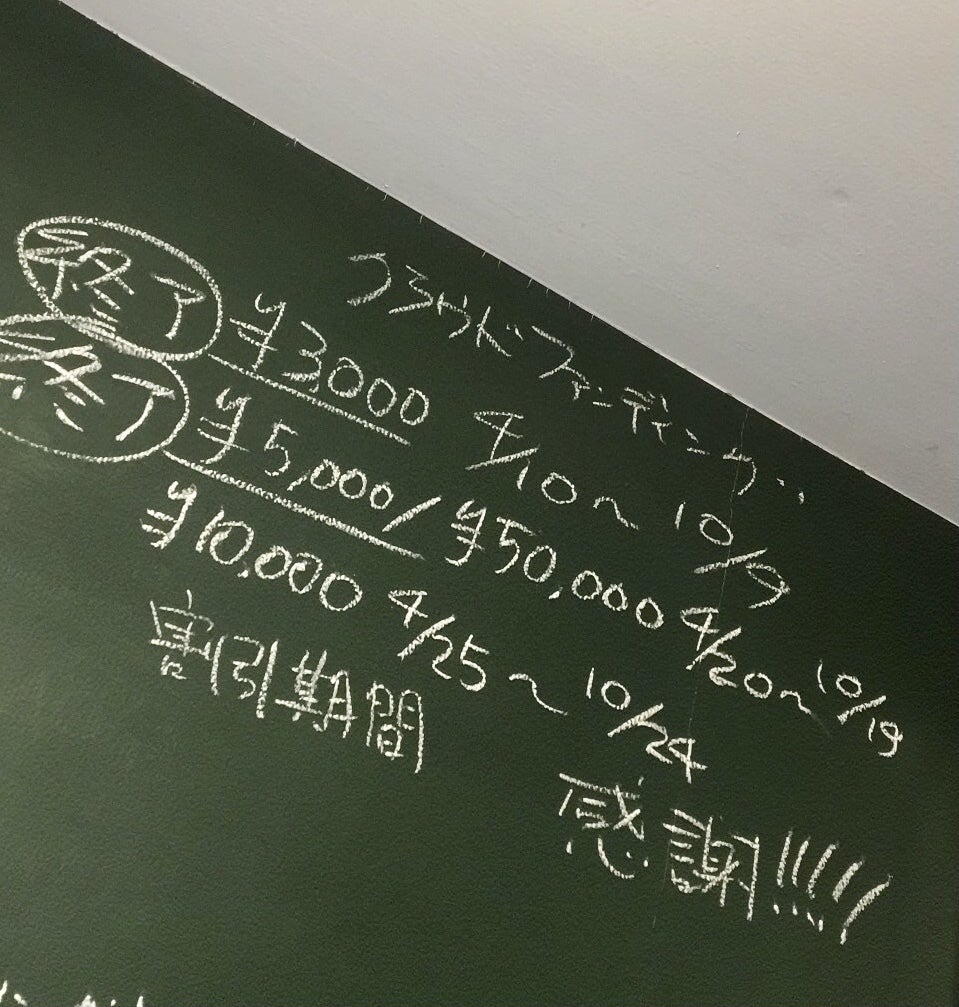 クラウドファンディング..
終了 ¥3000 4/10〜10/9
終了 ¥5,000/¥50,000 4/20〜10/19
¥10,000 4/25〜10/24
割引期間
感謝!!!!!